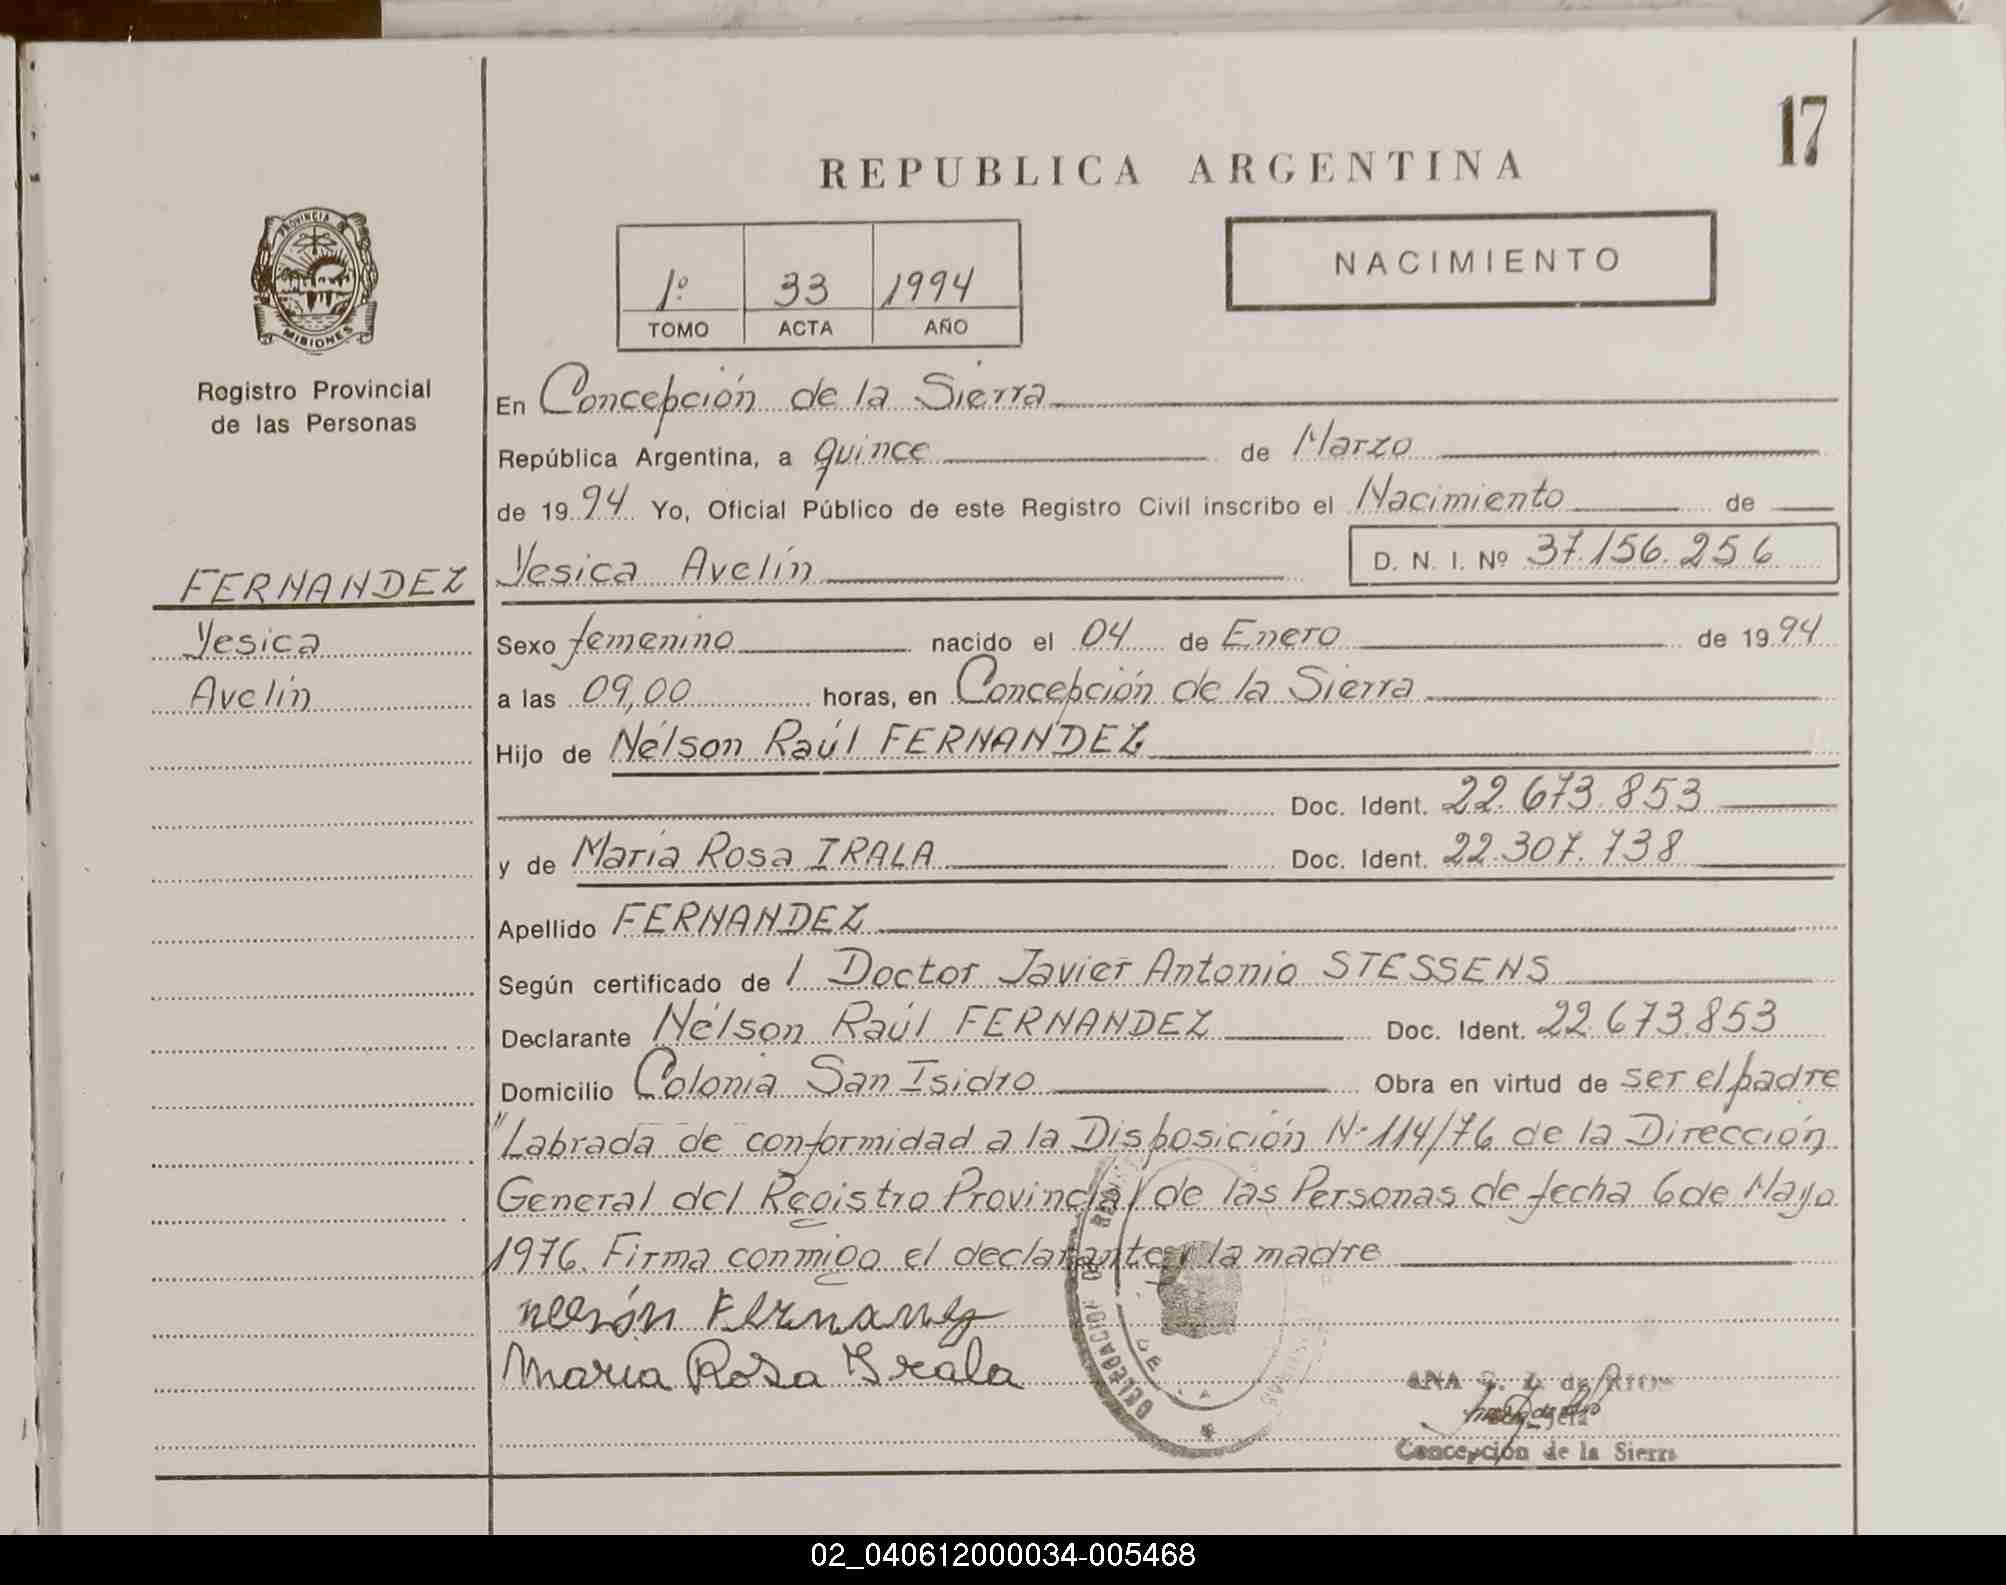 17
REPUBLICA ARGENTINA
PROVINCIA DE
MISIONES
Registro Provincial
de las Personas
1º 33 1994
TOMO ACTA AÑO
NACIMIENTO
En Concepción de la Sierra
República Argentina, a quince de Marzo
de 1994 Yo, Oficial Público de este Registro Civil inscribo el Nacimiento de
FERNANDEZ
Yesica
Avelín
Yesica Avelín D. N. I. Nº 37.156.256
Sexo femenino nacido el 04 de Enero de 1994
a las 09,00 horas, en Concepción de la Sierra
Hijo de Nélson Raúl FERNANDEZ
Doc. Ident. 22.673.853
y de María Rosa IRALA Doc. Ident. 22.307.738
Apellido FERNANDEZ
Según certificado de l Doctor Javier Antonio STESSENS
Declarante Nélson Raúl FERNANDEZ Doc. Ident. 22.673.853
Domicilio Colonia San Isidro Obra en virtud de ser el padre
"Labrada de conformidad a la Disposición Nº 114/76 de la Dirección
General del Registro Provincial de las Personas de fecha 6 de Mayo
1976. Firma conmigo el declarante y la madre
Maria Rosa Irala
DELEGACION
ANA de RIOS
Concepción de la Sierra
02_040612000034-005468